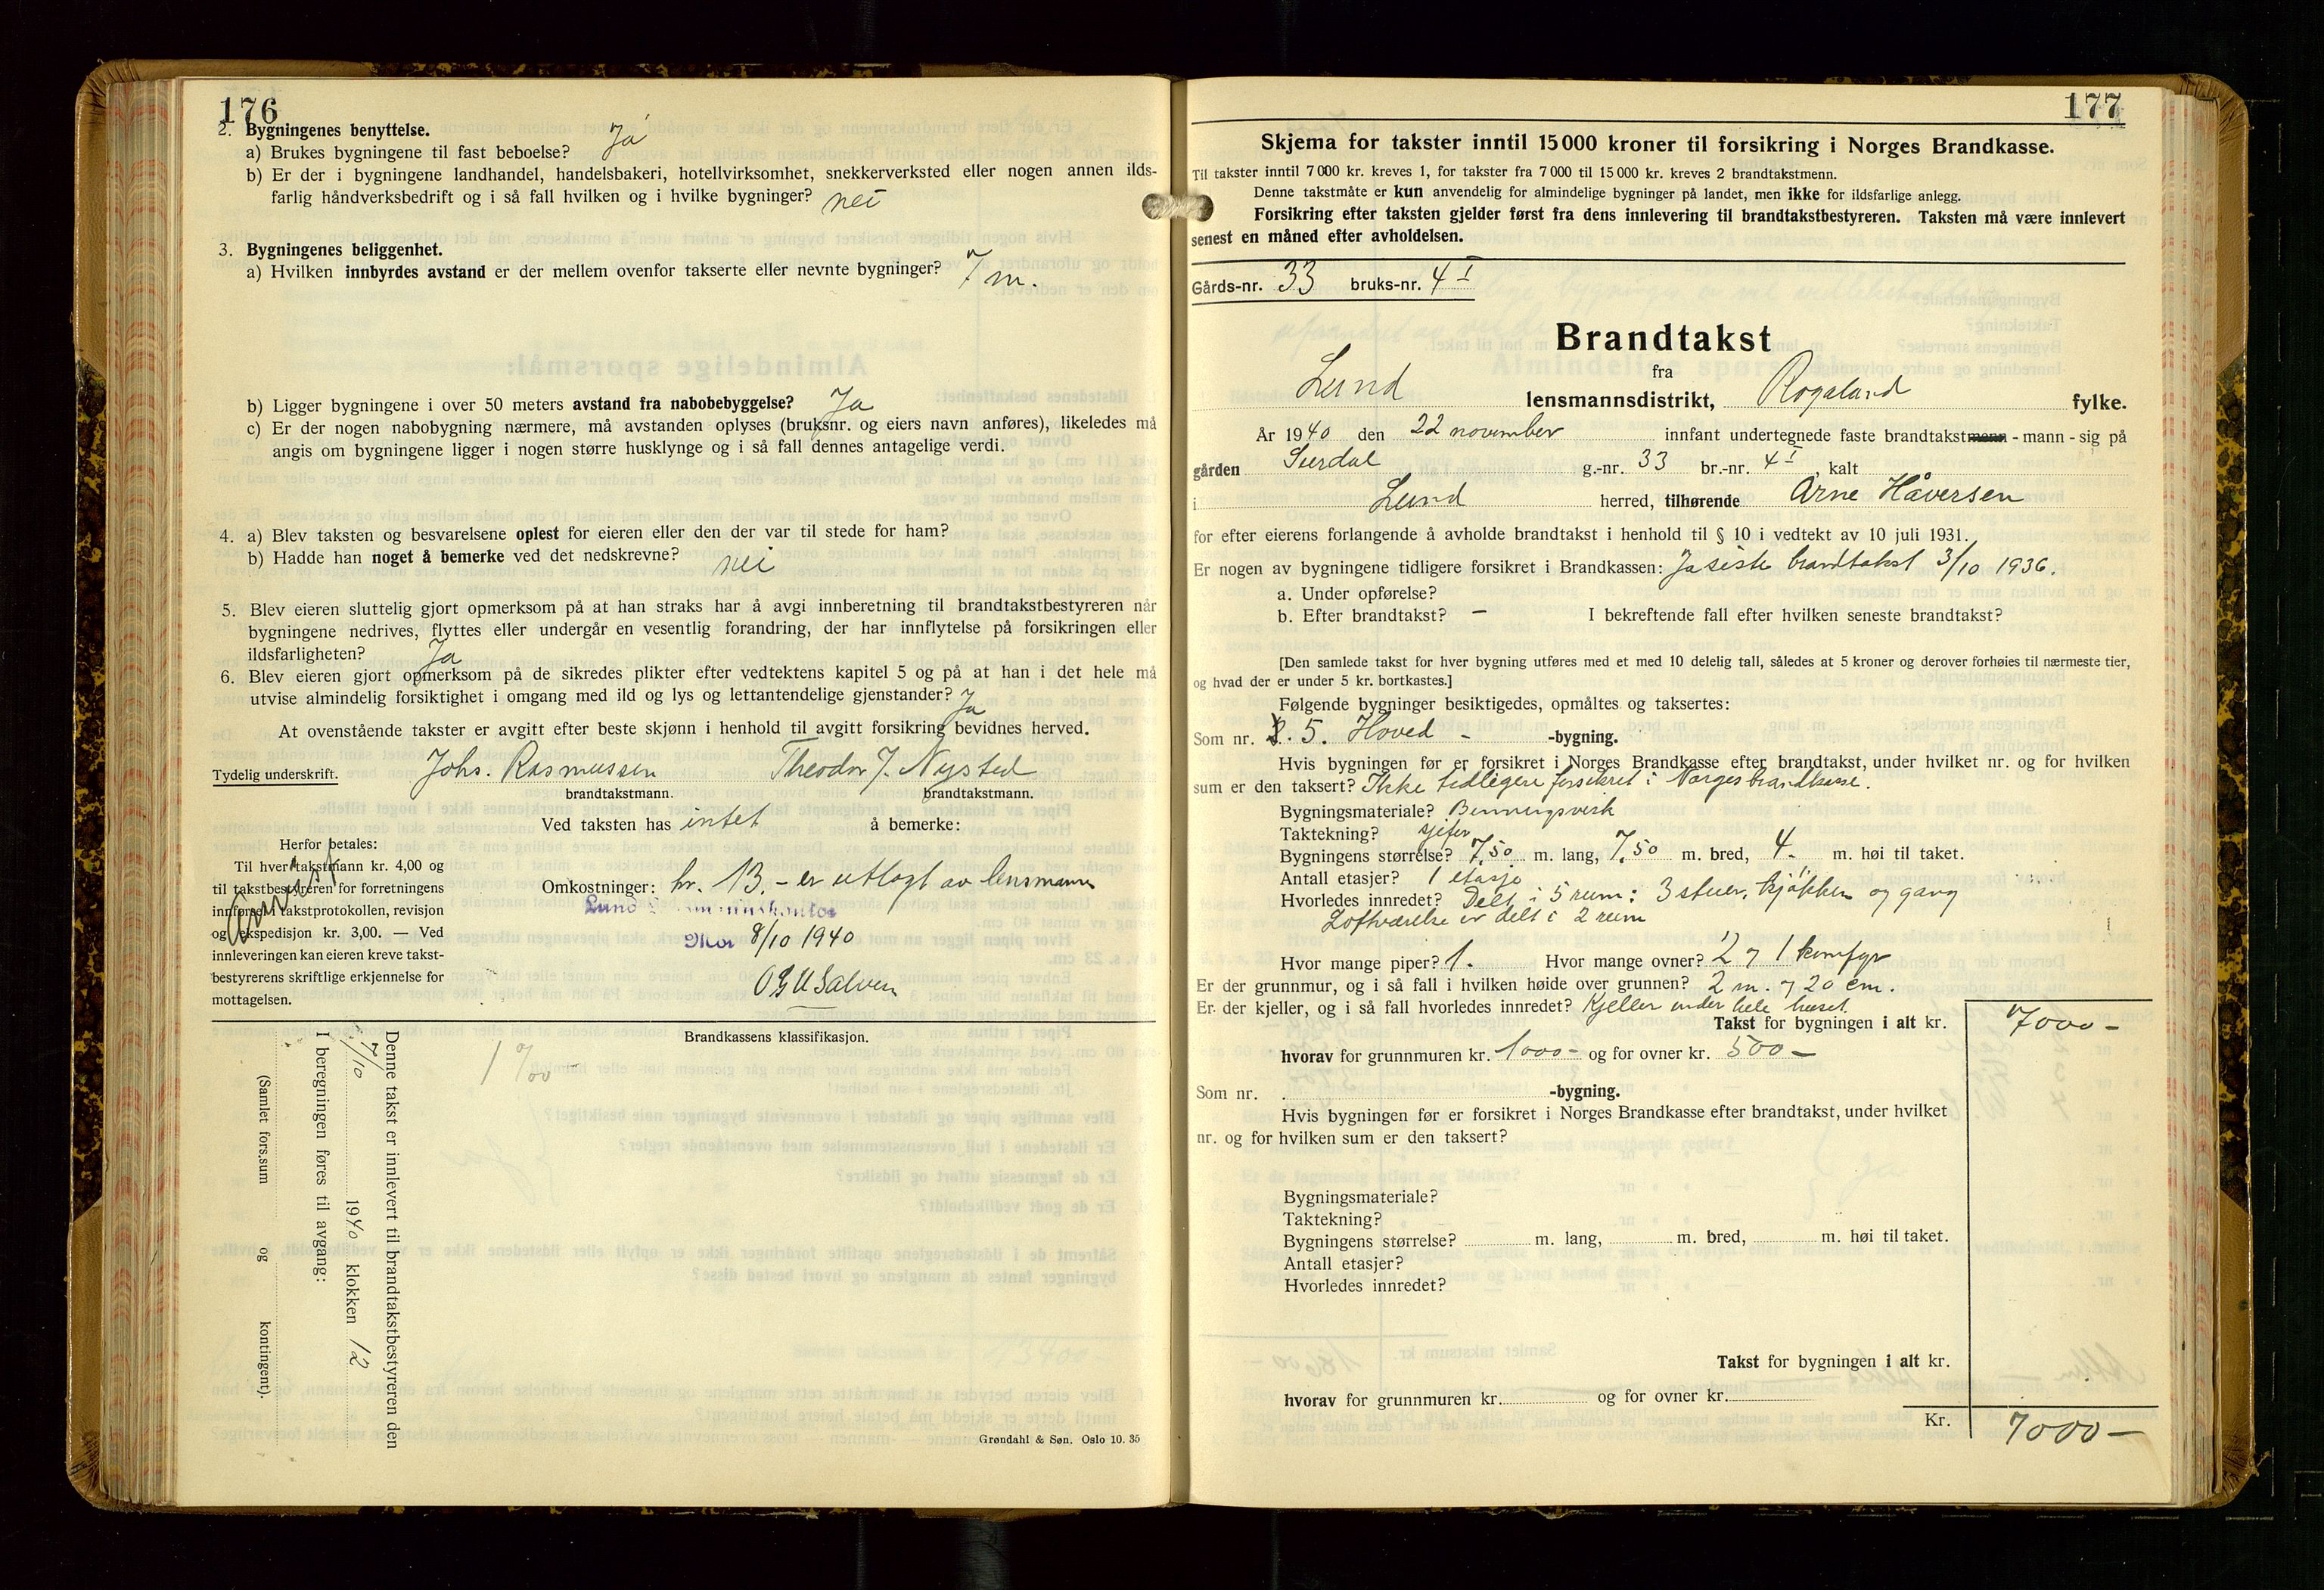 176
2. Bygningenes benyttelse.
a) Brukes bygningene til fast beboelse? Ja
b) Er der i bygningene landhandel, handelsbakeri, hotellvirksomhet, snekkerverksted eller nogen annen ilds-
farlig håndverksbedrift og i så fall hvilken og i hvilke bygninger? nei
3. Bygningenes beliggenhet.
a) Hvilken innbyrdes avstand er der mellem ovenfor takserte eller nevnte bygninger? 7 m.
b) Ligger bygningene i over 50 meters avstand fra nabobebyggelse? Ja
c) Er der nogen nabobygning nærmere, må avstanden oplyses (bruksnr. og eiers navn anføres), likeledes må
angis om bygningene ligger i nogen større husklynge og i så fall dennes antagelige verdi.
4. a) Blev taksten og besvarelsene oplest for eieren eller den der var til stede for ham?
b) Hadde han noget å bemerke ved det nedskrevne? nei
5. Blev eieren sluttelig gjort opmerksom på at han straks har å avgi innberetning til brandtakstbestyreren når
bygningene nedrives, flyttes eller undergår en vesentlig forandring, der har innflytelse på forsikringen eller
ildsfarligheten? Ja
6. Blev eieren gjort opmerksom på de sikredes plikter efter vedtektens kapitel 5 og på at han i det hele må
utvise almindelig forsiktighet i omgang med ild og lys og lettantendelige gjenstander? Ja
At ovenstående takster er avgitt efter beste skjønn i henhold til avgitt forsikring bevidnes herved.
Tydelig underskrift. Johs. Rasmussen Theodor J. Nysted
brandtakstmann. brandtakstmann.
Ved taksten has intet å bemerke:
Herfor betales:
Til hver takstmann kr. 4,00 og
til takstbestyreren for forretningens
innførsel i takstprotokollen, revisjon
og ekspedisjon kr. 3,00. — Ved
innleveringen kan eieren kreve takst-
bestyrerens skriftlige erkjennelse for
mottagelsen.
Omkostninger: kr. 13.- er utlagt av lensmann
Lund
Moi 8/10 1940
Brandkassens klassifikasjon.
Denne takst er innlevert til brandtakstbestyreren den
7/10 1940 klokken 12
I beregningen føres til avgang:
(Samlet fors.sum og kontingent).
Grøndahl & Søn. Oslo 10. 35
177
Skjema for takster inntil 15 000 kroner til forsikring i Norges Brandkasse.
Til takster inntil 7 000 kr. kreves 1, for takster fra 7 000 til 15 000 kr. kreves 2 brandtakstmenn.
Denne takstmåte er kun anvendelig for almindelige bygninger på landet, men ikke for ildsfarlige anlegg.
Forsikring efter taksten gjelder først fra dens innlevering til brandtakstbestyreren. Taksten må være innlevert
senest en måned efter avholdelsen.
Gårds-nr. 33 bruks-nr. 4 I
Brandtakst
fra
Lund lensmannsdistrikt, Rogaland fylke.
År 1940 den 22 november innfant undertegnede faste brandtakstmenn - mann - sig på
gården Surdal g.-nr. 33 br.-nr. 4 I, kalt
i Lund herred, tilhørende Arne Håversen
for efter eierens forlangende å avholde brandtakst i henhold til § 10 i vedtekt av 10 juli 1931.
Er nogen av bygningene tidligere forsikret i Brandkassen: Ja siste brandtakst 3/10 1936.
a. Under opførelse?
b. Efter brandtakst? — I bekreftende fall efter hvilken seneste brandtakst?
[Den samlede takst for hver bygning utføres med et med 10 delelig tall, således at 5 kroner og derover forhøies til nærmeste tier,
og hvad der er under 5 kr. bortkastes.]
Følgende bygninger besiktigedes, opmåltes og taksertes:
Som nr. 5. Hoved - -bygning.
Hvis bygningen før er forsikret i Norges Brandkasse efter brandtakst, under hvilket nr. og for hvilken
sum er den taksert? Ikke tidligere forsikret i Norges brandkasse.
Bygningsmateriale? Benningsverk
Taktekning? sjefer
Bygningens størrelse? 7,50 m. lang, 7,50 m. bred, 4. m. høi til taket.
Antall etasjer? 1 etasje
Hvorledes innredet? Delt i 5 rum: 3 stuer, kjøkken og gang
Loftværelse er delt i 2 rum
Hvor mange piper? 1. Hvor mange ovner? 2 og 1 komfyr
Er der grunnmur, og i så fall i hvilken høide over grunnen? 2 m. og 20 cm.
Er der kjeller, og i så fall hvorledes innredet? Kjeller under hele huset.
Takst for bygningen i alt kr. 7000 —
hvorav for grunnmuren kr. 1000 - og for ovner kr. 500 —
Som nr. -bygning.
Hvis bygningen før er forsikret i Norges Brandkasse efter brandtakst, under hvilket
nr. og for hvilken sum er den taksert?
Bygningsmateriale?
Taktekning?
Bygningens størrelse? m. lang, m. bred, m. høi til taket.
Antall etasjer?
Hvorledes innredet?
Takst for bygningen i alt kr.
hvorav for grunnmuren kr. og for ovner kr.
Kr. 7000 —